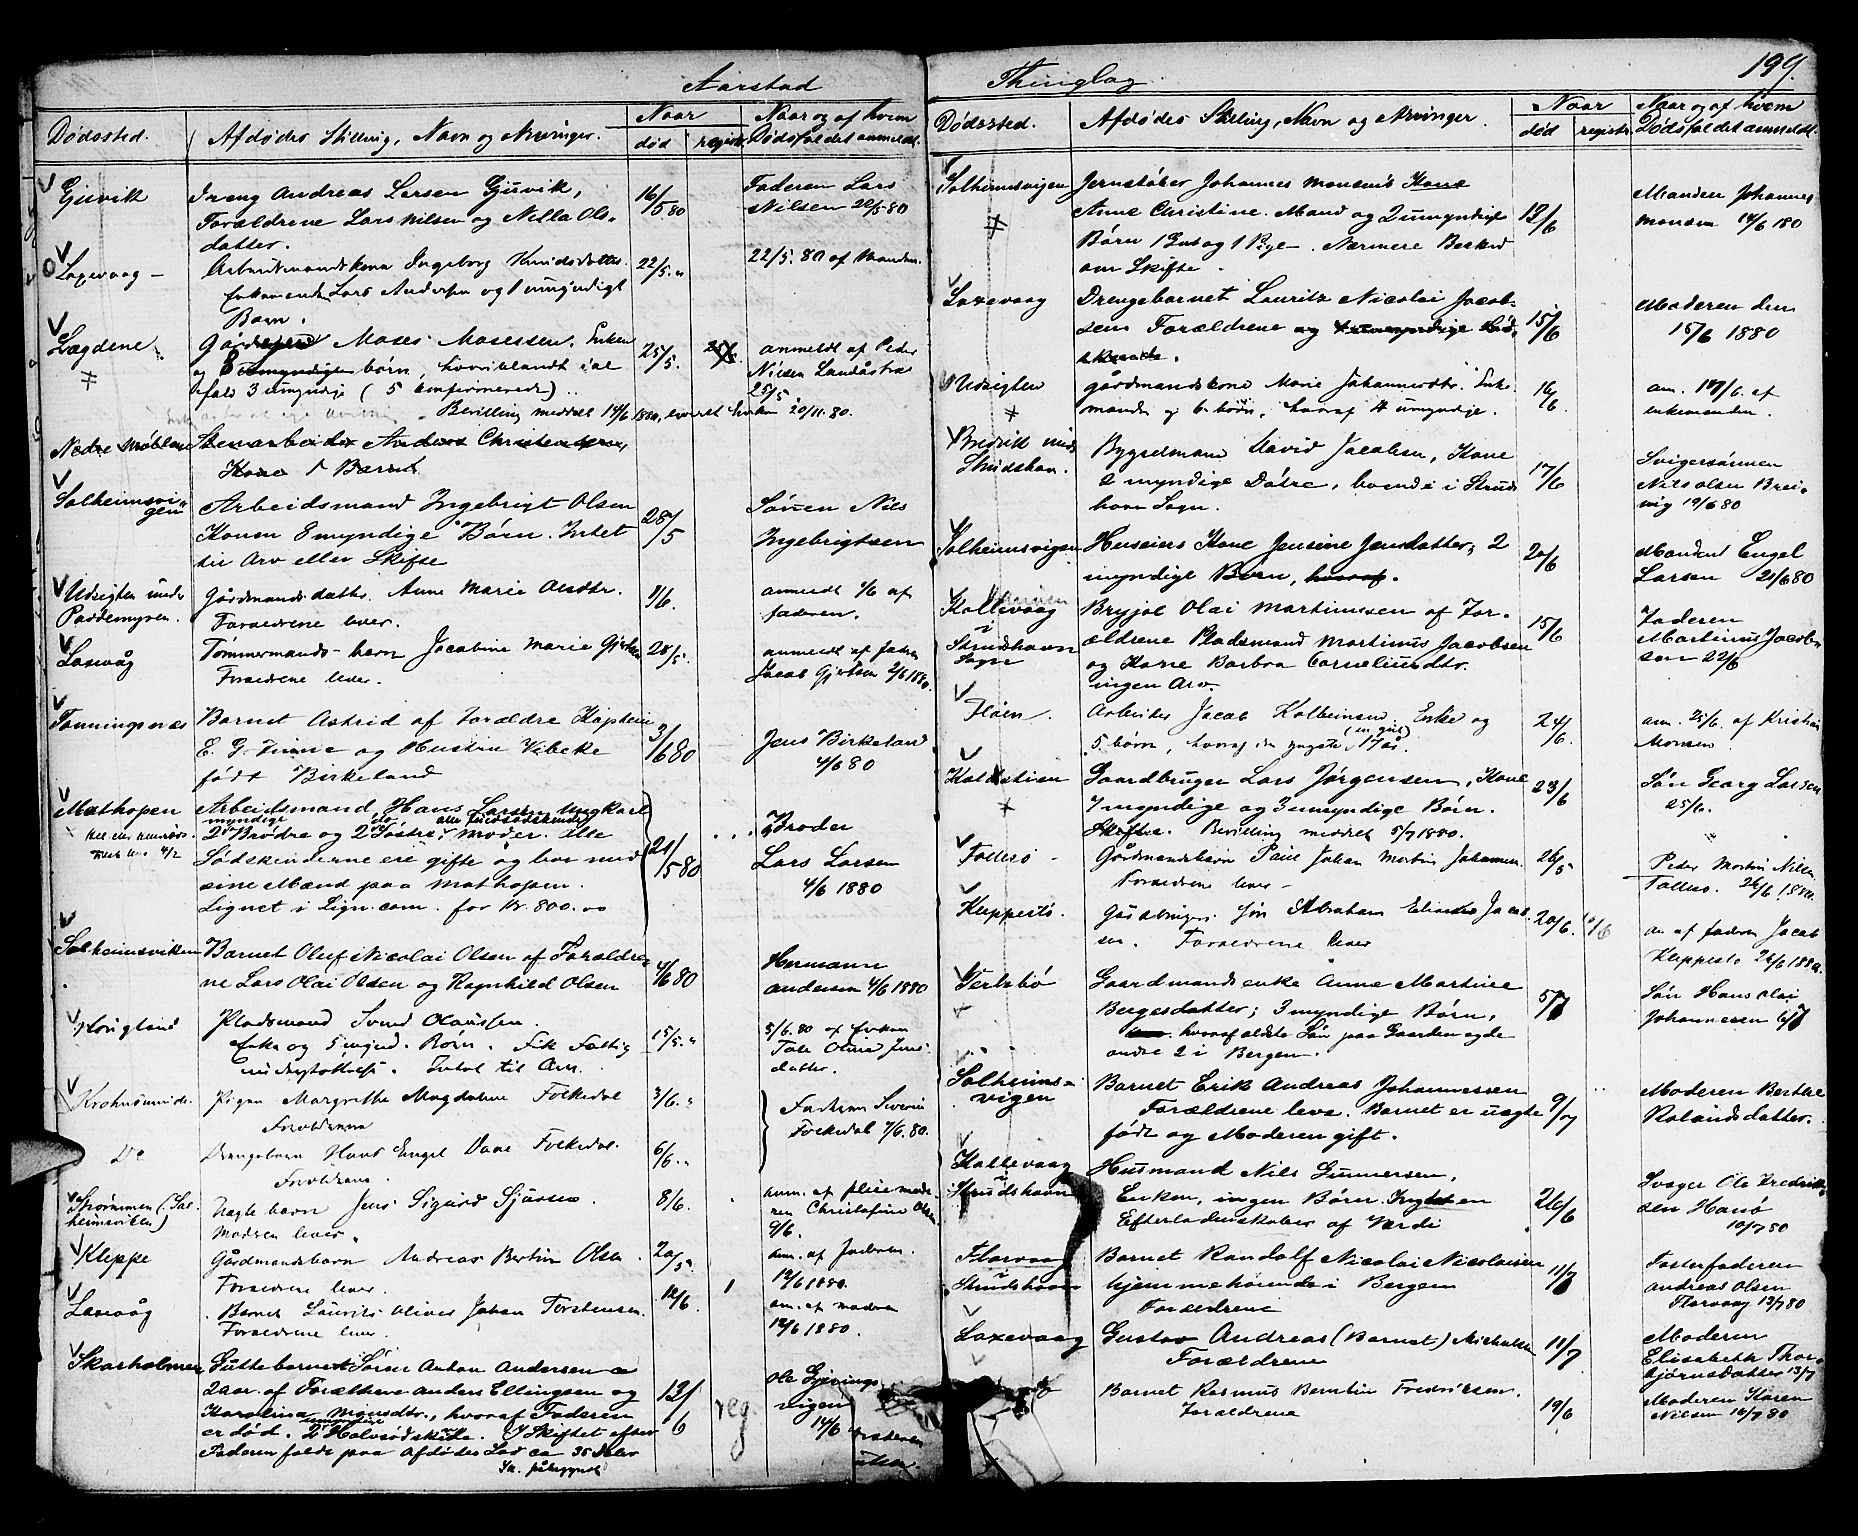 199.
Aarstad Thinglag
Dødssted. Afdødes Stilling, Navn og Arvinger. Naar død registr. Naar og af hvem Dødsfaldet anmeldt.
Gjuvik Dreng Andreas Larsen Gjuvik, 16/5 80 Faderen Lars
Forældrene Lars Nilsen og Nilla Ols- Nilsen 22/5 80
datter.
Laxevaag - Arbeidsmandskone Ingeborg Knudsdatter. 22/5 " 22/5. 80 af Manden
Enkemanden Lars Andersen og 1 umyndigt
Barn.
Lægdene Moses Mosessen. Enken 25/5. anmeldt af Peder
og 8 børn, hvoriblandt i al Nilsen Landåstræ
fald 3 umyndige (5 konfirmerede) 25/5
Bevilling meddelt 14/6 1880, 20/11. 80.
Nedre Stenarbeider Anders Christensen,
Kone 1 Barn
Solheimsvi- Arbeidsmand Ingebrigt Olsen 28/5 Sønnen Nils
gen Konen 8 myndige Børn. Intet Ingebrigtsen
til Arv eller Skifte
Udsigten under Gårdmandsdattr. Anne Marie 1/6. anmeldt 1/6 af
Paddemyren. Forældrene lever. faderen.
Laxevåg Tømmermands-barn Jacobine Marie 28/5. anmeldt af faderen
Forældrene lever. Jacob Gjertsen 2/6 1880.
Tonningsnæs Barnet Astrid af Forældre Kaptein 3/6 80 Jens Birkeland
E. G. og Hustru Vibeke 4/6 80
født Birkeland
Mathopen Arbeidsmand Hans Larsen Ungkarl 21/5 80 Broder
2 myndige Brødre og 2 Søstre, Moder. Alle Lars Larsen
Sødskinderne ere gifte og bor med 4/6 1880
sine Mænd paa Mathopen.
Lignet i Lign.com. for Kr. 800.00
Solheimsviken Barnet Oluf Nicolai Olsen af Forældre- 4/6 80 Hermann
ne Lars Olai Olsen og Ragnhild Olsen Andersen 4/6 1880
Haugland Pladsmand Svend Olaussen. 15/5. " 5/6. 80 af Enken
Enke og 5 mynd. Børn. Fik Fattig Tale Oline Jens
understøttelse. Intet til Arv. datter.
Krohnsminde. Pigen Margrethe Magdalene Folkedal 3/6. " Faderen Severin
Forældrene Folkedal 7/6. 80.
Do Drengebarn Hans Engel Folkedal. 6/6. "
Forældrene.
Strømmen (Sol- Uægte barn Jens Sigurd Sjursen. 8/6. anm. af pleiemode-
heimsviken) Modren lever. ren Christofine Olsen
9/6.
Kleppe Gårdmandsbarn Andreas Bertin Olsen. 20/5. anm. af faderen.
Forældrene lever. 12/6 1880.
Laxevåg Barnet Laurits Oliver Johan Torstensen. 12/6. anm. af modren
Forældrene lever. 12/6 1880.
Skarholmen Guttebarnet Søren Anton Andersen 12/6 reg Ole Gjerings-
2 aar. af Forældrene Anders Ellingsen og vigen
Karolina Mgnsdtr., hvoraf Faderen 14/6
er død. 2 Halvsødskende. I Skiftet efter
Faderen faldt paa Afdødes Lod ca 35 Daler
Dødssted. Afdødes Stilling, Navn og Arvinger. Naar død registr. Naar og af hvem Dødsfaldet anmeldt.
Solheimsvigen Jernstøber Johannes Monsens Kone 12/6 Manden Johannes
Anne Christine. Mand og 2 umyndige Monsen 14/6 180
Børn 1 Gut og 1 Pige. Nærmere Besked
om Skifte.
Laxevaag Drengebarnet Lauritz Nicolai Jacob- 15/6 Moderen den
sen Forældrene og 15/6 1880
Udsigten gårdmandskone Marie Johannesdtr. Enke- 16/6 an. 17/6. af
manden og 6 børn, hvoraf 4 umyndige. enkemanden.
Bredvik Bygselmand David Jacobsen, Kone 17/6 Svigersønnen
Strudshavn. 2 myndige Døtre, boende i Struds- Nils Olsen Brei-
havn Sogn. vig 19/6 80
Solheimsvigen Huseiers Kone Jensine Jensdatter, 2 20/6 Manden Engel
myndige Børn, hvoraf. Larsen 21/6 80
Kallevaag Brynjel Olai Martinussen af For- 15/6 Faderen
i Strudshavn ældrene Pladsmand Martinus Jacobsen Martinus Jacob-
Sogn og Kone Barbra Corneliusdtr. sen 22/6
ingen Arv.
Fløen. Arbeider Jacob Kolbeinsen. Enke og 24/6. an. 25/6. af Kristian
5 børn, hvoraf den yngste (en gut) 17 år. Monsen
Gaardbruger Lars Jørgensen, Kone 23/6 Søn Georg Larsen
7 myndige og 3 umyndige Børn. 25/6.
Skifte. Bevilling meddelt 5/7 1880.
Tollesø - Gårdmandsbarn Paul Johan Martin Johannes. 26/5 Peder Martin Nilsen
Forældrene lever - Tollesø. 26/6 1880.
Kleppestø. Gårdbrugers søn Abraham Jacob- 20/6. an af faderen Jacob
sen. Forældrene lever Kleppestø 26/6 1880.
Gaardmandsenke Anne Martine 5/7 Søn Hans Olai
Bergesdatter; 3 myndige Børn, Johannesen 6/7
hvoraf ældste Søn paa Gaarden og de
andre 2 i Bergen.
Solheims- Barnet Erik Andreas Johannessen 9/7 Moderen Berthe
vigen Forældrene leve. Barnet er uægte Rolandsdatter.
født og Moderen gift.
Kallevaag Husmand Nils Gunnersen, 26/6 Svoger Ole Fredrik-
i Strudshavn Enken, ingen Børn. Ingen sen Hanø
Efterladenskaber af Værdi 10/7 80
Florvaag Barnet Randolf Nicolai Nicolaisen 11/7 Fosterfaderen
i Strudshavn hjemmehørende i Bergen Andreas Olsen
Forældrene Florvaag 13/7 80
Laxevaag Gustav Andreas (Barnet) Michalsen 11/7 Moderen
Forældrene Elisabeth Thor-
bjørnsdatter 13/7
Barnet Rasmus Berntin Fredriksen. 19/6 Moderen Karen
Forældrene Nilsen 16/7 80